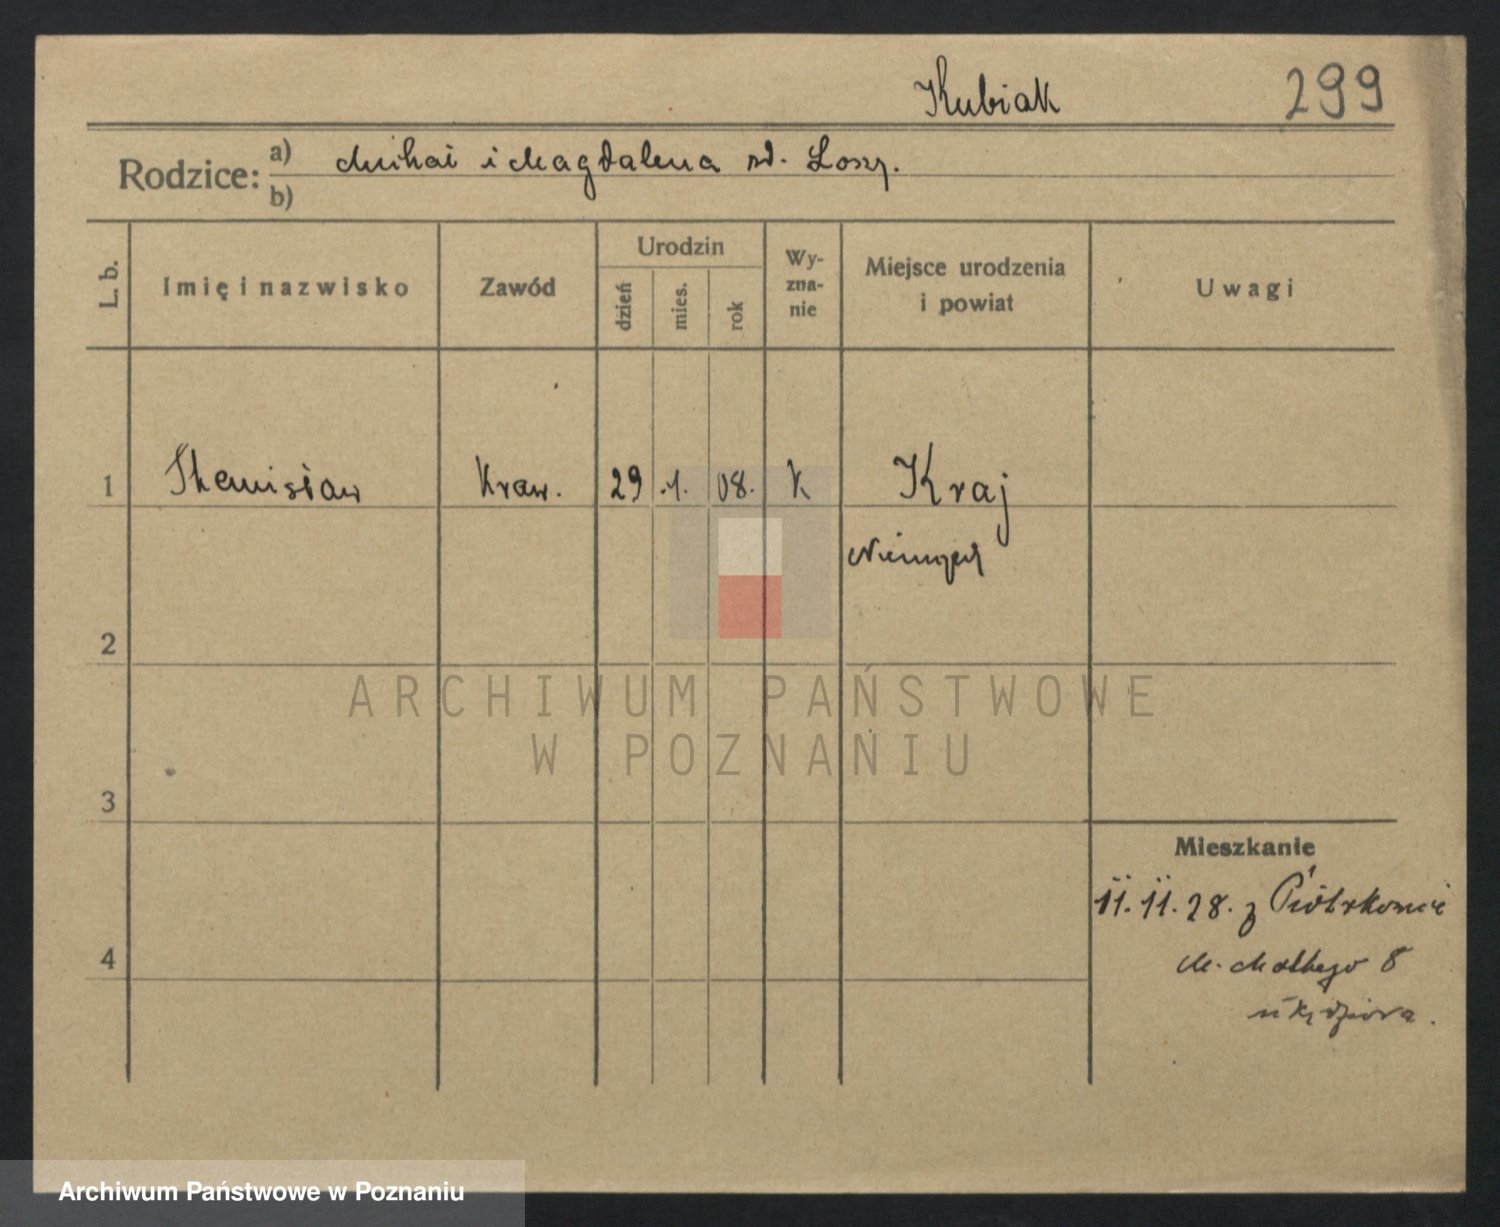 Kubiak 299
Rodzice: a) Michał i Magdalena zd. Losy.
b)
L. b. Imię i nazwisko Zawód Urodzin dzień mies. rok Wy-zna-nie Miejsce urodzenia i powiat Uwagi
1 Stanisław Kraw. 29 .1. 08. K Kraj
2
3
4
Mieszkanie
11.11.28. z
8
u Kędziora.
ARCHIWUM PAŃSTWOWE
W POZNANIU
Archiwum Państwowe w Poznaniu